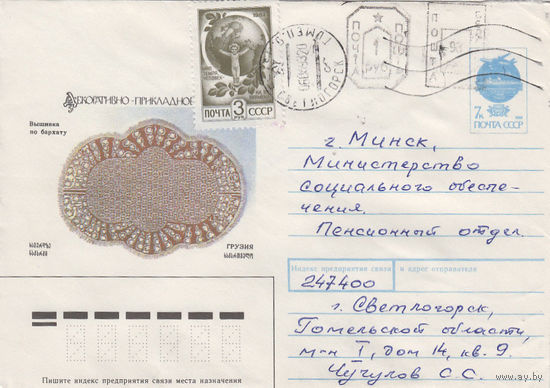 ПОЧТА 3 СССР
ПОЧТА
1
РУС
ПОШТА
7к
ПОЧТА СССР
ДЕКОРАТИВНО-ПРИКЛАДНОЕ
Вышивка
по бархату
ГРУЗИЯ
г. Минск,
Министерство
социального обеспе-
чения.
Пенсионный отдел.
Индекс предприятия связи и адрес отправителя
247400
г. Светлогорск,
Гомельской области,
м-н I, дом 14, кв. 9.
Чугулов С. С.
Пишите индекс предприятия связи места назначения
www.ay.by